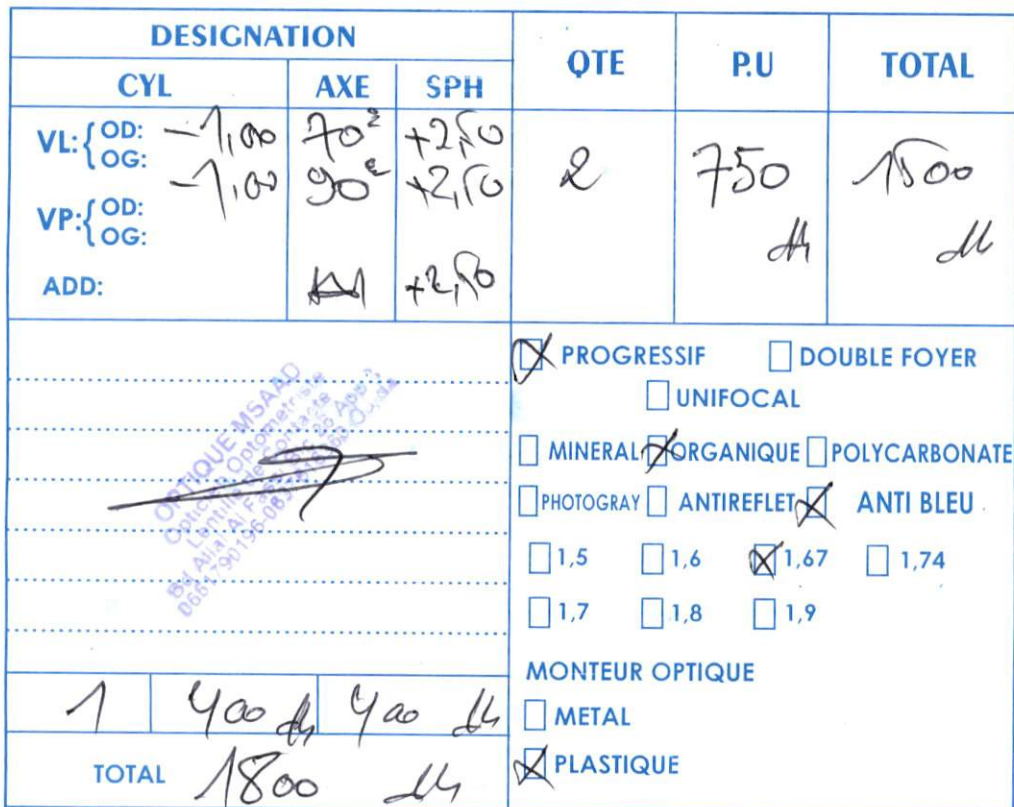 DESIGNATION QTE P.U TOTAL
CYL AXE SPH
VL: OD: -1,00 70° +2,50 2 750 1500
OG: -1,00 90° +2,50 dh dh
VP: OD:
OG:
ADD: +2,50
OPTIQUE MSAAD
Opticien Optometriste
Lentille de Contacte
Bd Allal Al Fassi
PROGRESSIF DOUBLE FOYER
UNIFOCAL
MINERAL ORGANIQUE POLYCARBONATE
PHOTOGRAY ANTIREFLET ANTI BLEU
1,5 1,6 1,67 1,74
1,7 1,8 1,9
MONTEUR OPTIQUE
METAL
PLASTIQUE
1 400 dh 400 dh
TOTAL 1800 dh